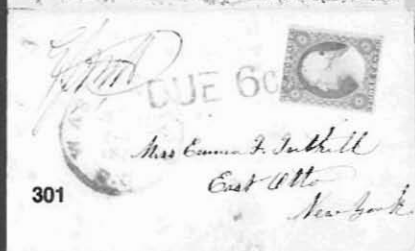 DUE 6c
Miss Emma F. Tuthill
East Otto
New York
301